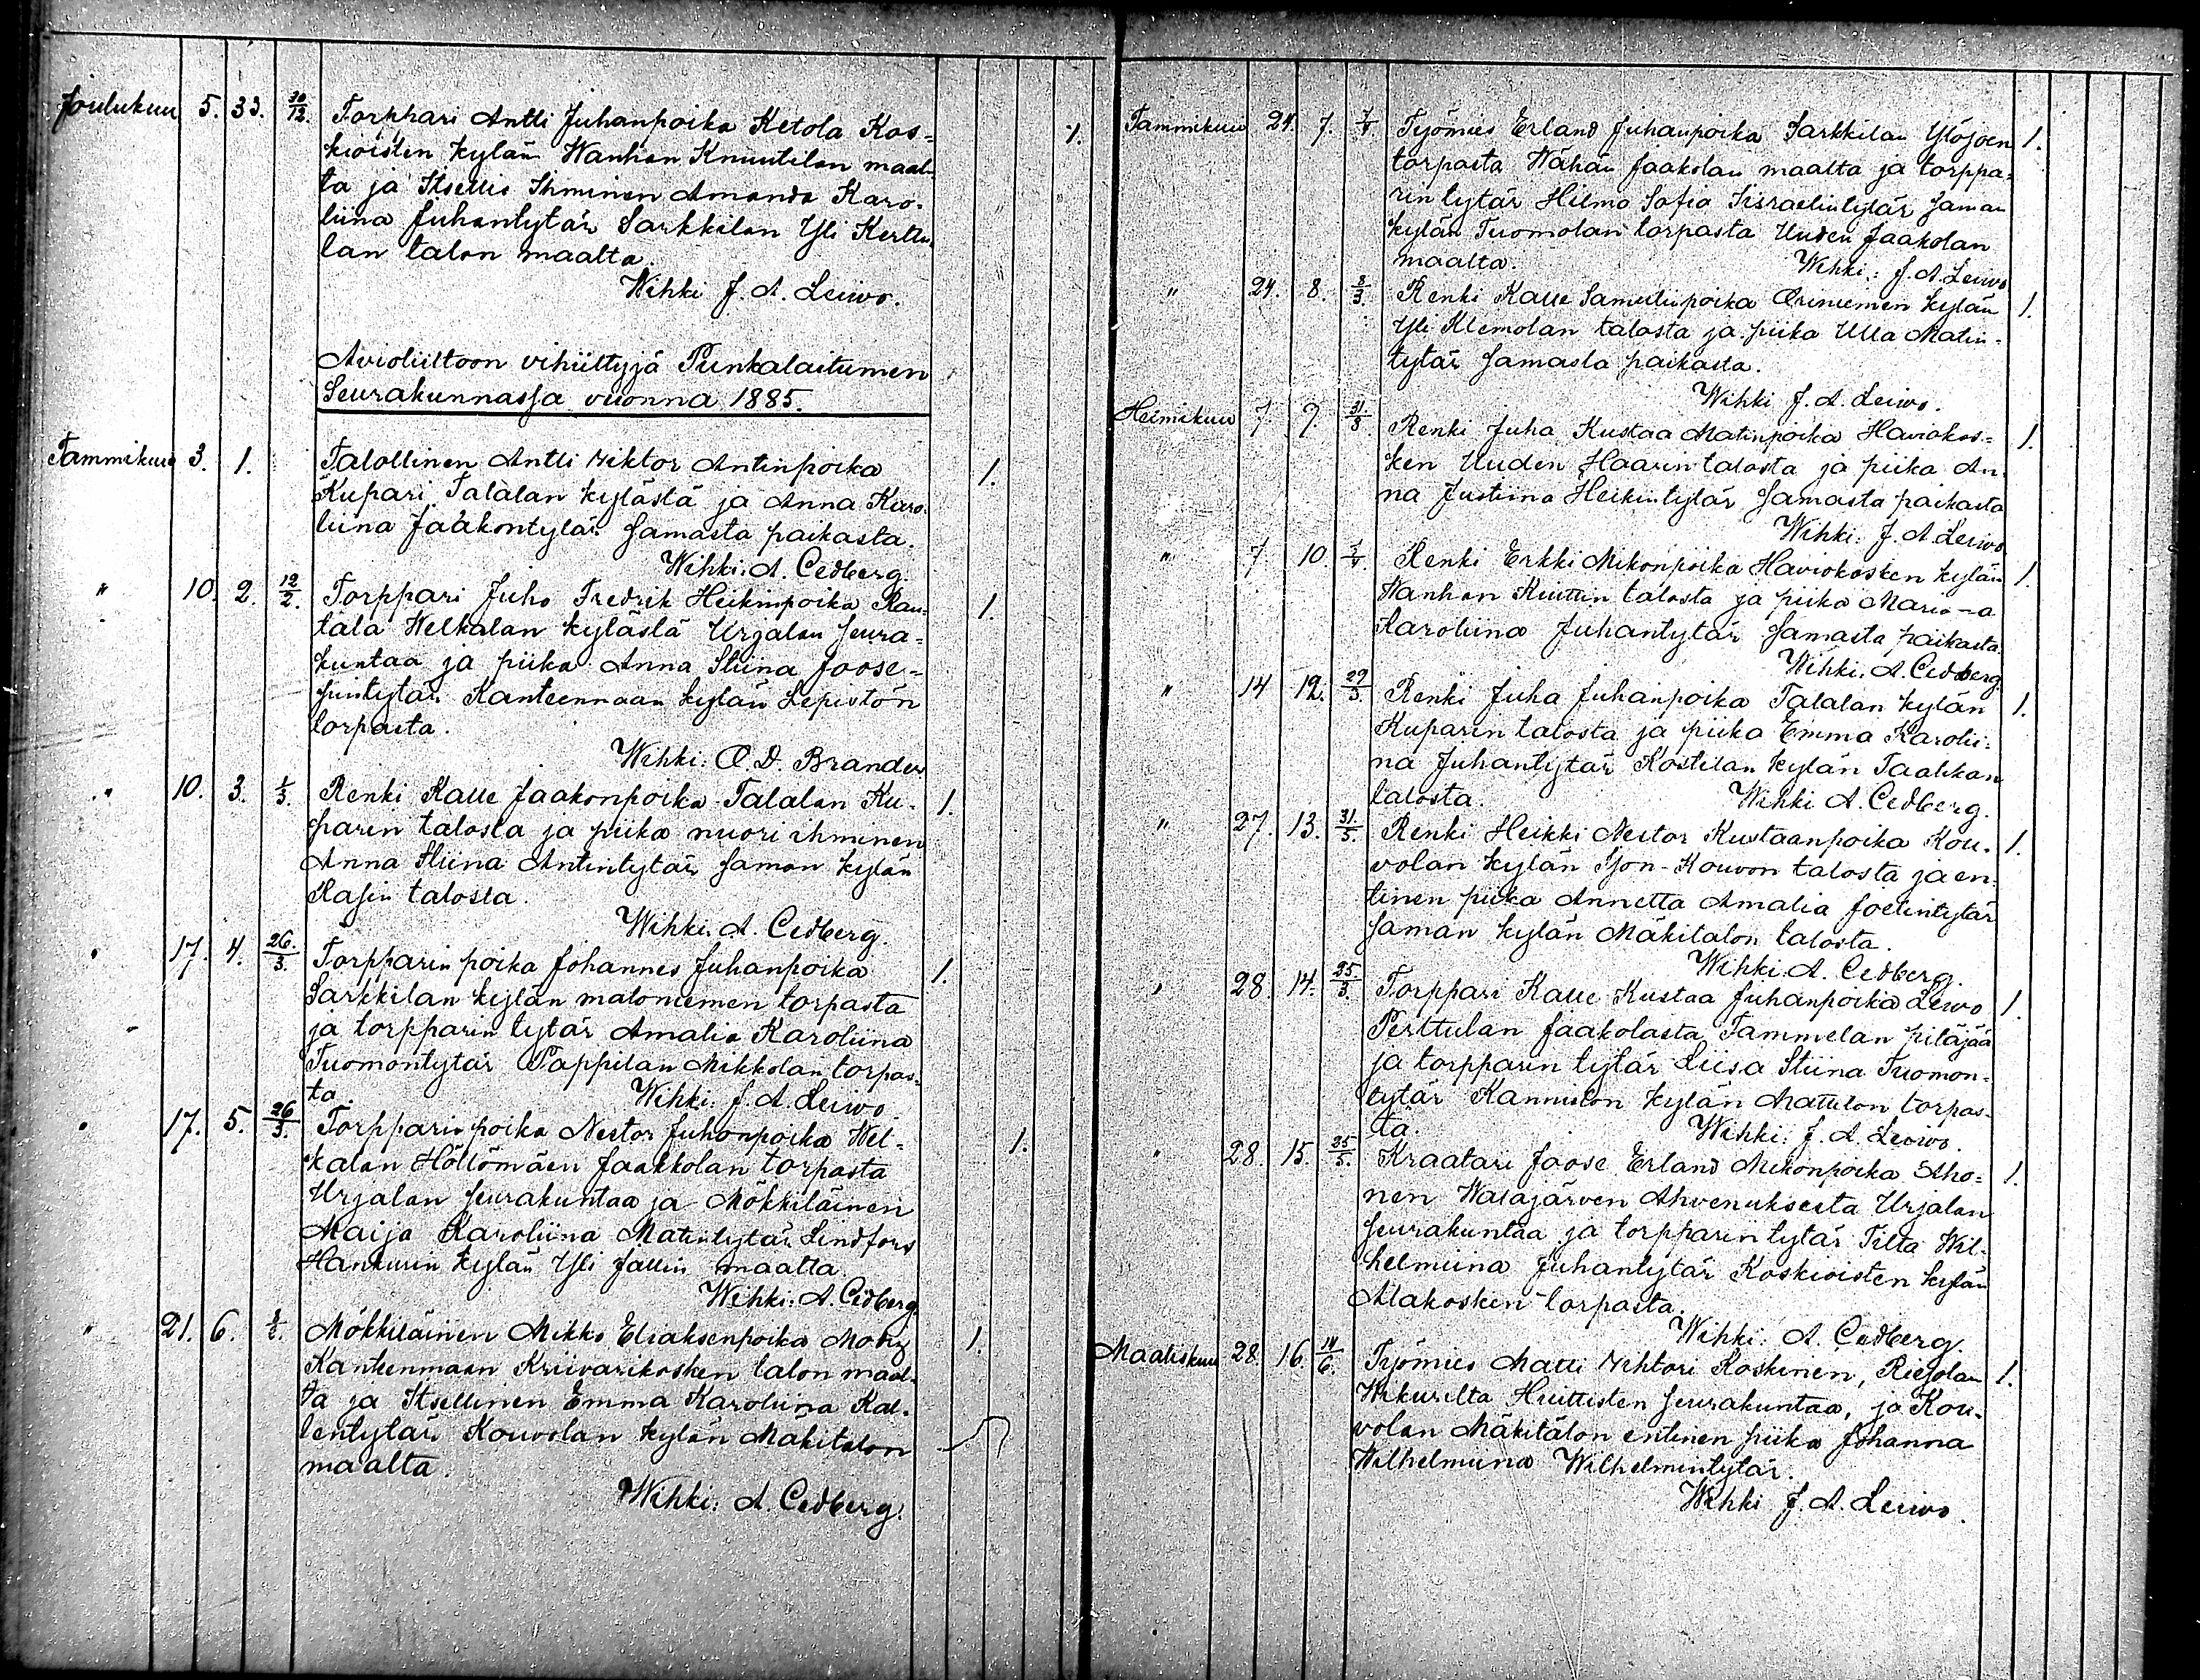 Joulukuu 5. 33. 30/12. Torppari Antti Juhanpoika Ketola Kos=
kioisten kylän Wanhan Knuutilan maal=
ta ja Itsellis Ihminen Amanda Karo=
liina Juhantytär Sarkkilan Yli Kerttu=
lan talon maalta. 1.
Wihki J. A. Leiwo.
Avioliittoon vihittyjä Punkalaitumen
Seurakunnassa vuonna 1885.
Tammikuu 3. 1. Talollinen Antti Viktor Antinpoika 1.
Kupari Talalan kylästä ja Anna Karo=
liina Jaakontytär Samasta paikasta.
Wihki. A. Cedberg.
" 10. 2. 12/2. Torppari Juho Fredrik Heikinpoika Rau= 1.
tala Welkalan kylästä Urjalan seura=
kuntaa ja piika Anna Stiina Joose=
fintytär Kanteenmaan kylän Lepistön
torpasta.
Wihki: O. D. Brander
" 10. 3. 1/3. Renki Kalle Jaakonpoika Talalan Ku= 1.
parin talosta ja piika nuori ihminen
Anna Stiina Antintytär Saman kylän
Rasin talosta.
Wihki. A. Cedberg.
" 17. 4. 26./3. Torpparin poika Johannes Juhanpoika 1.
Sarkkilan kylän maloniemen torpasta
ja torpparin tytär Amalia Karoliina
Tuomontytär Pappilan Mikkolan torpas=
ta.
Wihki: J. A. Leiwo.
" 17. 5. 26/3. Torpparin poika Nestor Juhonpoika Wel= 1.
kalan Höllömäen Jaakkolan torpasta
Urjalan seurakuntaa ja Mökkiläinen
Maija Karoliina Matintytär Lindfors
Hankurin kylän Yli Jallin maalta.
Wihki: A. Cedberg.
" 21. 6. Mökkiläinen Mikko Eliaksenpoika 1.
Kanteenmaan Kriivarikosken talon maal=
ta ja Itsellinen Emma Karoliina Kal=
lentytär Kouvolan kylän Mäkitalon
maalta.
Wihki: A. Cedberg.
Tammikuu 24. 7. Työmies Erland Juhanpoika Sarkkilan Ylöjoen 1.
torpasta Wähän Jaakolan maalta ja torppa=
rin tytär Hilma Sofia Iisraelintytär Saman
kylän Tuomolan torpasta Uuden Jaakolan
maalta.
Wihki: J. A. Leiwo
" 24. 8. 8/3. Renki Kalle Samulinpoika Oriniemen kylän 1.
Yli Klemolan talosta ja piika Ulla Matin=
tytär Samasta paikasta.
Wihki J. A. Leiwo.
Helmikuu 7. 9. Renki Juha Kustaa Matinpoika Haviokos= 1.
ken Uuden Haarin talosta ja piika An=
na Justiina Heikintytär Samasta paikasta
Wihki: J. A. Leiwo
" 7 10. Renki Erkki Mikonpoika Haviokosken kylän 1.
Wanhan Kiuttun talosta ja piika Maria
Karoliina Juhantytär Samasta paikasta.
Wihki. A. Cedberg.
" 14 12. 29/3. Renki Juha Juhanpoika Talalan kylän 1.
Kuparin talosta ja piika Emma Karolii=
na Juhantytär Kostilan kylän Taalikan
talosta.
Wihki A. Cedberg.
" 27. 13. 31./5. Renki Heikki Nestor Kustaanpoika Kou= 1.
volan kylän Ison-Kouvon talosta ja en=
tinen piika Annetta Amalia Joelintytär
Saman kylän Mäkitalon talosta.
Wihki. A. Cedberg.
" 28 14. 25./3. Torppari Kalle Kustaa Juhanpoika Leivo 1.
Perttulan Jaakolasta Tammelan pitäjää
ja torpparin tytär Liisa Stiina Tuomon=
tytär Kanniston kylän Mattilan torpas=
ta.
Wihki: J. A. Leiwo.
" 28. 15. 25/5. Kraatari Joose Erland Mikonpoika Aho= 1.
nen Walajärven Ahvenuksesta Urjalan
seurakuntaa ja torpparin tytär Tilta Wil=
helmiina Juhantytär Koskioisten kylän
Alakosken torpasta.
Wihki: A. Cedberg.
Maaliskuu 28. 16. 14/6. Työmies Matti Vihtori Koskinen, Riesolan 1.
Wikurilta Huittisten seurakuntaa, ja Kou=
volan Mäkitalon entinen piika Johanna
Wilhelmiina Wilhelmintytär.
Wihki J. A. Leiwo.